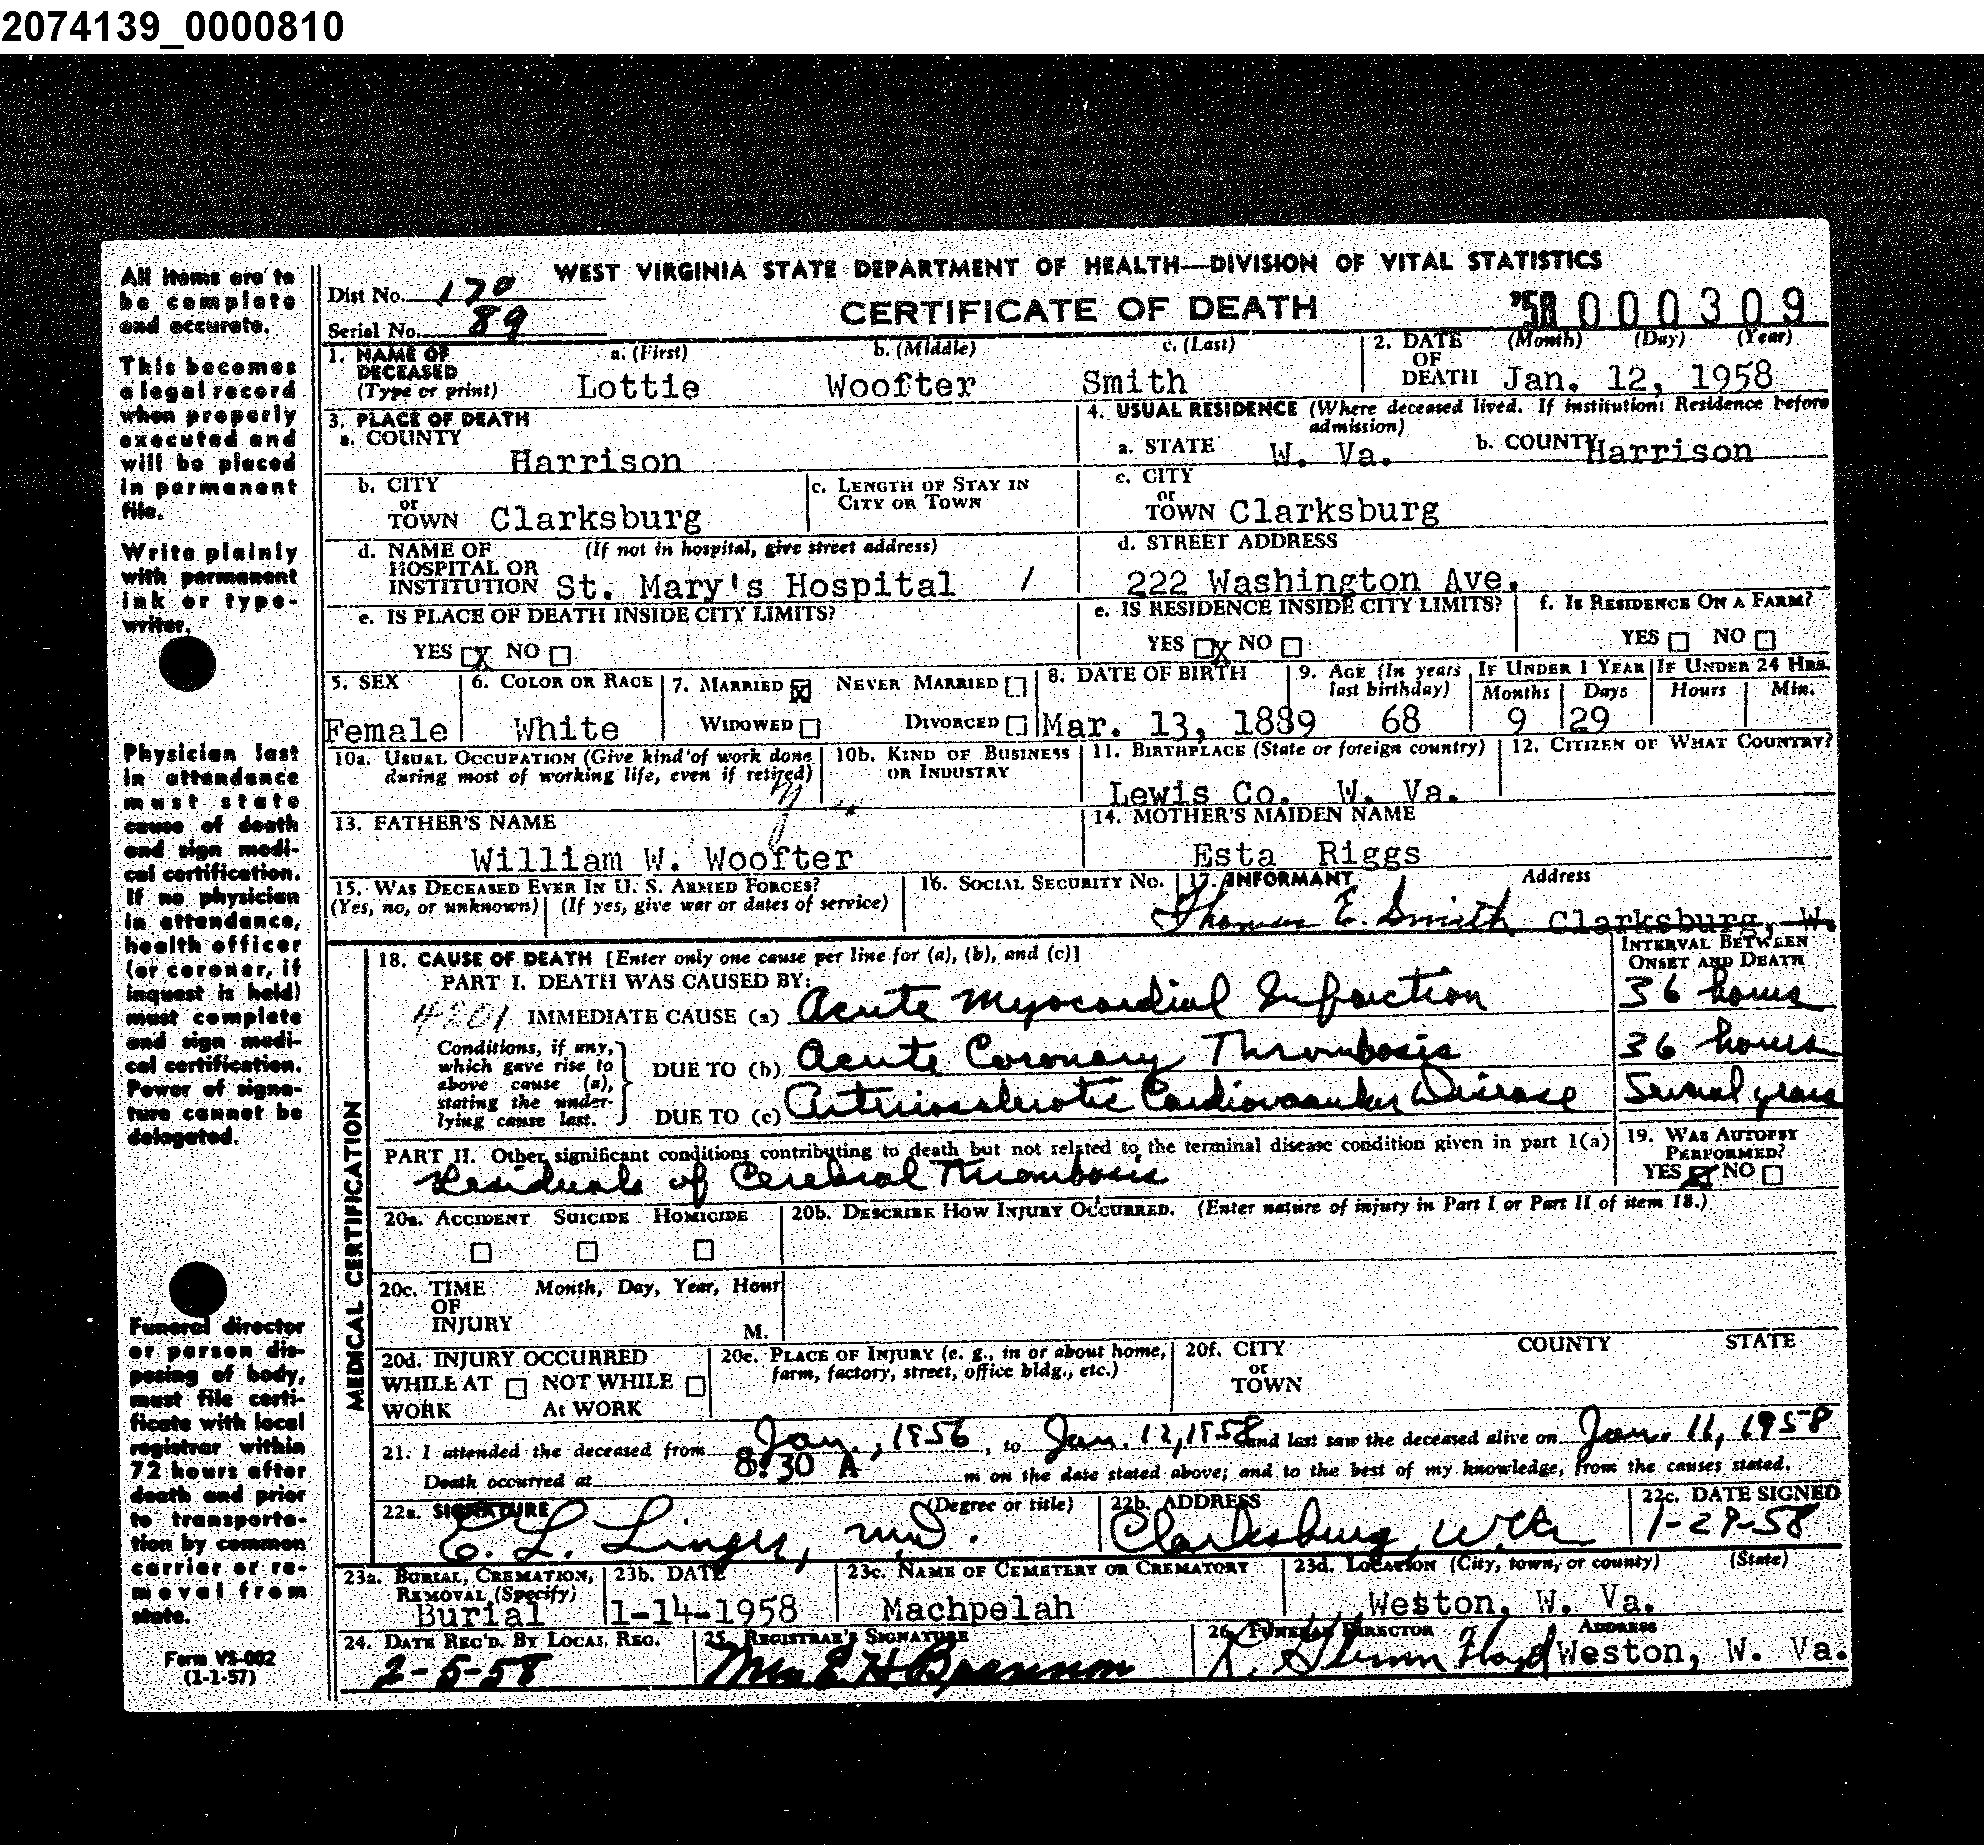 2074139_0000810
WEST VIRGINIA STATE DEPARTMENT OF HEALTH—DIVISION OF VITAL STATISTICS
CERTIFICATE OF DEATH
Dist No. 170
Serial No. 89
'58 000309
1. NAME OF DECEASED (Type or print) a. (First) b. (Middle) c. (Last)
Lottie Woofter Smith
2. DATE OF DEATH (Month) (Day) (Year)
Jan. 12, 1958
3. PLACE OF DEATH
a. COUNTY
Harrison
4. USUAL RESIDENCE (Where deceased lived. If institution: Residence before admission)
a. STATE W. Va. b. COUNTY Harrison
b. CITY or TOWN Clarksburg
c. LENGTH OF STAY IN CITY OR TOWN
c. CITY or TOWN Clarksburg
d. NAME OF HOSPITAL OR INSTITUTION (If not in hospital, give street address)
St. Mary's Hospital /
d. STREET ADDRESS
222 Washington Ave.
e. IS PLACE OF DEATH INSIDE CITY LIMITS?
YES X NO
e. IS RESIDENCE INSIDE CITY LIMITS?
YES X NO
f. IS RESIDENCE ON A FARM?
YES NO
5. SEX
Female
6. COLOR OR RACE
White
7. MARRIED X NEVER MARRIED
WIDOWED DIVORCED
8. DATE OF BIRTH
Mar. 13, 1889
9. AGE (In years last birthday)
68
IF UNDER 1 YEAR
Months Days
9 29
IF UNDER 24 HRS.
Hours Min.
10a. USUAL OCCUPATION (Give kind of work done during most of working life, even if retired)
10b. KIND OF BUSINESS OR INDUSTRY
11. BIRTHPLACE (State or foreign country)
Lewis Co. W. Va.
12. CITIZEN OF WHAT COUNTRY?
13. FATHER'S NAME
William W. Woofter
14. MOTHER'S MAIDEN NAME
Esta Riggs
15. WAS DECEASED EVER IN U. S. ARMED FORCES?
(Yes, no, or unknown) (If yes, give war or dates of service)
16. SOCIAL SECURITY NO.
17. INFORMANT Address
Thomas E. Smith Clarksburg, W.
MEDICAL CERTIFICATION
18. CAUSE OF DEATH [Enter only one cause per line for (a), (b), and (c)]
INTERVAL BETWEEN ONSET AND DEATH
PART I. DEATH WAS CAUSED BY:
4201 IMMEDIATE CAUSE (a) Acute Myocardial Infarction 36 hours
Conditions, if any, which gave rise to above cause (a), stating the underlying cause last.
DUE TO (b) Acute Coronary Thrombosis 36 hours
DUE TO (c) Arteriosclerotic Cardiovascular Disease Several years
PART II. Other significant conditions contributing to death but not related to the terminal disease condition given in part I(a)
Residuals of Cerebral Thrombosis
19. WAS AUTOPSY PERFORMED?
YES X NO
20a. ACCIDENT SUICIDE HOMICIDE
20b. DESCRIBE HOW INJURY OCCURRED. (Enter nature of injury in Part I or Part II of item 18.)
20c. TIME OF INJURY Month, Day, Year, Hour
M.
20d. INJURY OCCURRED
WHILE AT WORK NOT WHILE At WORK
20e. PLACE OF INJURY (e. g., in or about home, farm, factory, street, office bldg., etc.)
20f. CITY or TOWN COUNTY STATE
21. I attended the deceased from Jan., 1956, to Jan. 12, 1958 and last saw the deceased alive on Jan. 11, 1958
Death occurred at 8:30 A m on the date stated above; and to the best of my knowledge, from the causes stated.
22a. SIGNATURE (Degree or title)
C. L. Linger, M.D.
22b. ADDRESS
Clarksburg, W.Va
22c. DATE SIGNED
1-29-58
23a. BURIAL, CREMATION, REMOVAL (Specify)
Burial
23b. DATE
1-14-1958
23c. NAME OF CEMETERY OR CREMATORY
Machpelah
23d. LOCATION (City, town, or county) (State)
Weston, W. Va.
24. DATE REC'D. BY LOCAL REG.
2-5-58
25. REGISTRAR'S SIGNATURE
Mrs E H Brennon
26. FUNERAL DIRECTOR ADDRESS
Weston, W. Va.
All items are to
be complete
and accurate.
This becomes
a legal record
when properly
executed and
will be placed
in permanent
file.
Write plainly
with permanent
ink or type-
writer.
Physician last
in attendance
must state
cause of death
and sign medi-
cal certification.
If no physician
in attendance,
health officer
(or coroner, if
inquest is held)
must complete
and sign medi-
cal certification.
Power of signa-
ture cannot be
delegated.
Funeral director
or person dis-
posing of body,
must file certi-
ficate with local
registrar within
72 hours after
death and prior
to transporta-
tion by common
carrier or re-
moval from
state.
Form VS-002
(1-1-57)